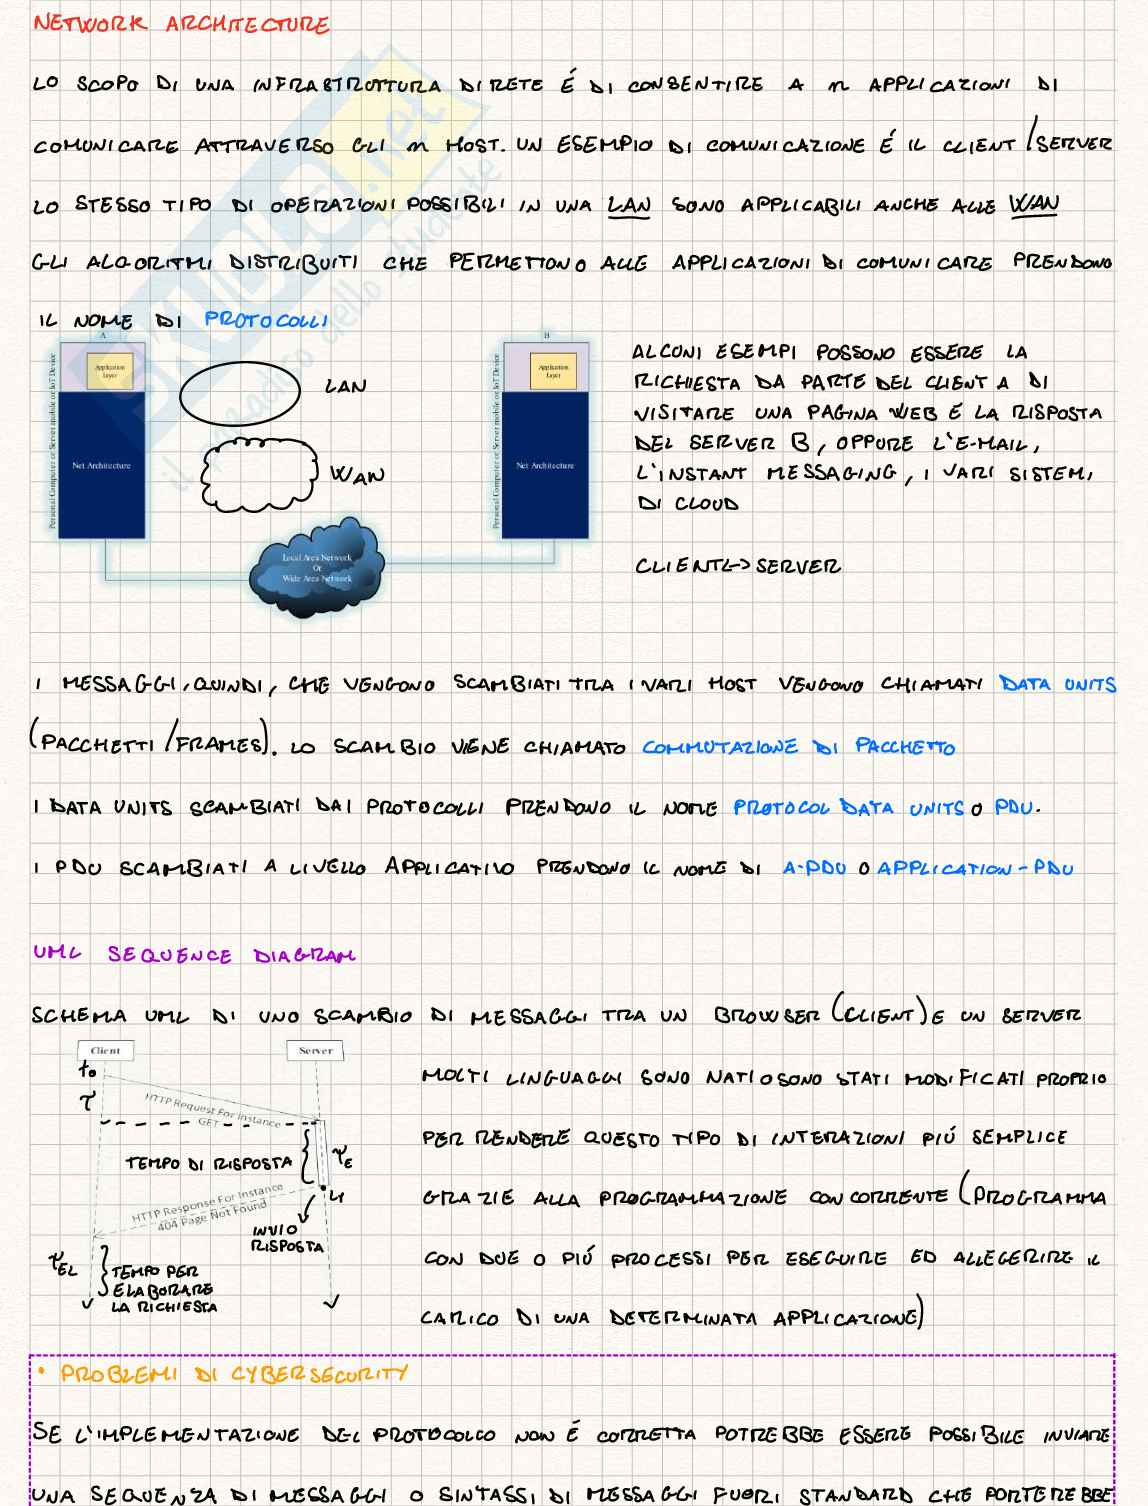 NETWORK ARCHITECTURE
LO SCOPO DI UNA INFRASTRUTTURA DI RETE É DI CONSENTIRE A n APPLICAZIONI DI
COMUNICARE ATTRAVERSO GLI n HOST. UN ESEMPIO DI COMUNICAZIONE É IL CLIENT/SERVER
LO STESSO TIPO DI OPERAZIONI POSSIBILI IN UNA LAN SONO APPLICABILI ANCHE ALLE WAN
GLI ALGORITMI DISTRIBUITI CHE PERMETTONO ALLE APPLICAZIONI DI COMUNICARE PRENDONO
IL NOME DI PROTOCOLLI
SKUOLA.net
il paradiso dello studente
A
Personal Computer or Server mobile or IoT Device
Application
Layer
Net Architecture
LAN
WAN
Local Area Network
Or
Wide Area Network
B
Personal Computer or Server mobile or IoT Device
Application
Layer
Net Architecture
ALCUNI ESEMPI POSSONO ESSERE LA
RICHIESTA DA PARTE DEL CLIENT A DI
VISITARE UNA PAGINA WEB E LA RISPOSTA
DEL SERVER B, OPPURE L'E-MAIL,
L'INSTANT MESSAGING, I VARI SISTEMI
DI CLOUD
CLIENT<->SERVER
I MESSAGGI, QUINDI, CHE VENGONO SCAMBIATI TRA I VARI HOST VENGONO CHIAMATI DATA UNITS
(PACCHETTI/FRAMES). LO SCAMBIO VIENE CHIAMATO COMMUTAZIONE DI PACCHETTO
I DATA UNITS SCAMBIATI DAI PROTOCOLLI PRENDONO IL NOME PROTOCOL DATA UNITS O PDU.
I PDU SCAMBIATI A LIVELLO APPLICATIVO PRENDONO IL NOME DI A-PDU O APPLICATION-PDU
UML SEQUENCE DIAGRAM
SCHEMA UML DI UNO SCAMBIO DI MESSAGGI TRA UN BROWSER (CLIENT) E UN SERVER
Client
Server
t0
τ
HTTP Request For Instance
GET
TEMPO DI RISPOSTA
τE
HTTP Response For Instance
404 Page Not Found
INVIO
RISPOSTA
τEL
TEMPO PER
ELABORARE
LA RICHIESTA
MOLTI LINGUAGGI SONO NATI O SONO STATI MODIFICATI PROPRIO
PER RENDERE QUESTO TIPO DI INTERAZIONI PIÚ SEMPLICE
GRAZIE ALLA PROGRAMMAZIONE CONCORRENTE (PROGRAMMA
CON DUE O PIÚ PROCESSI PER ESEGUIRE ED ALLEGERIRE IL
CARICO DI UNA DETERMINATA APPLICAZIONE)
• PROBLEMI DI CYBERSECURITY
SE L'IMPLEMENTAZIONE DEL PROTOCOLLO NON É CORRETTA POTREBBE ESSERE POSSIBILE INVIARE
UNA SEQUENZA DI MESSAGGI O SINTASSI DI MESSAGGI FUORI STANDARD CHE PORTEREBBE